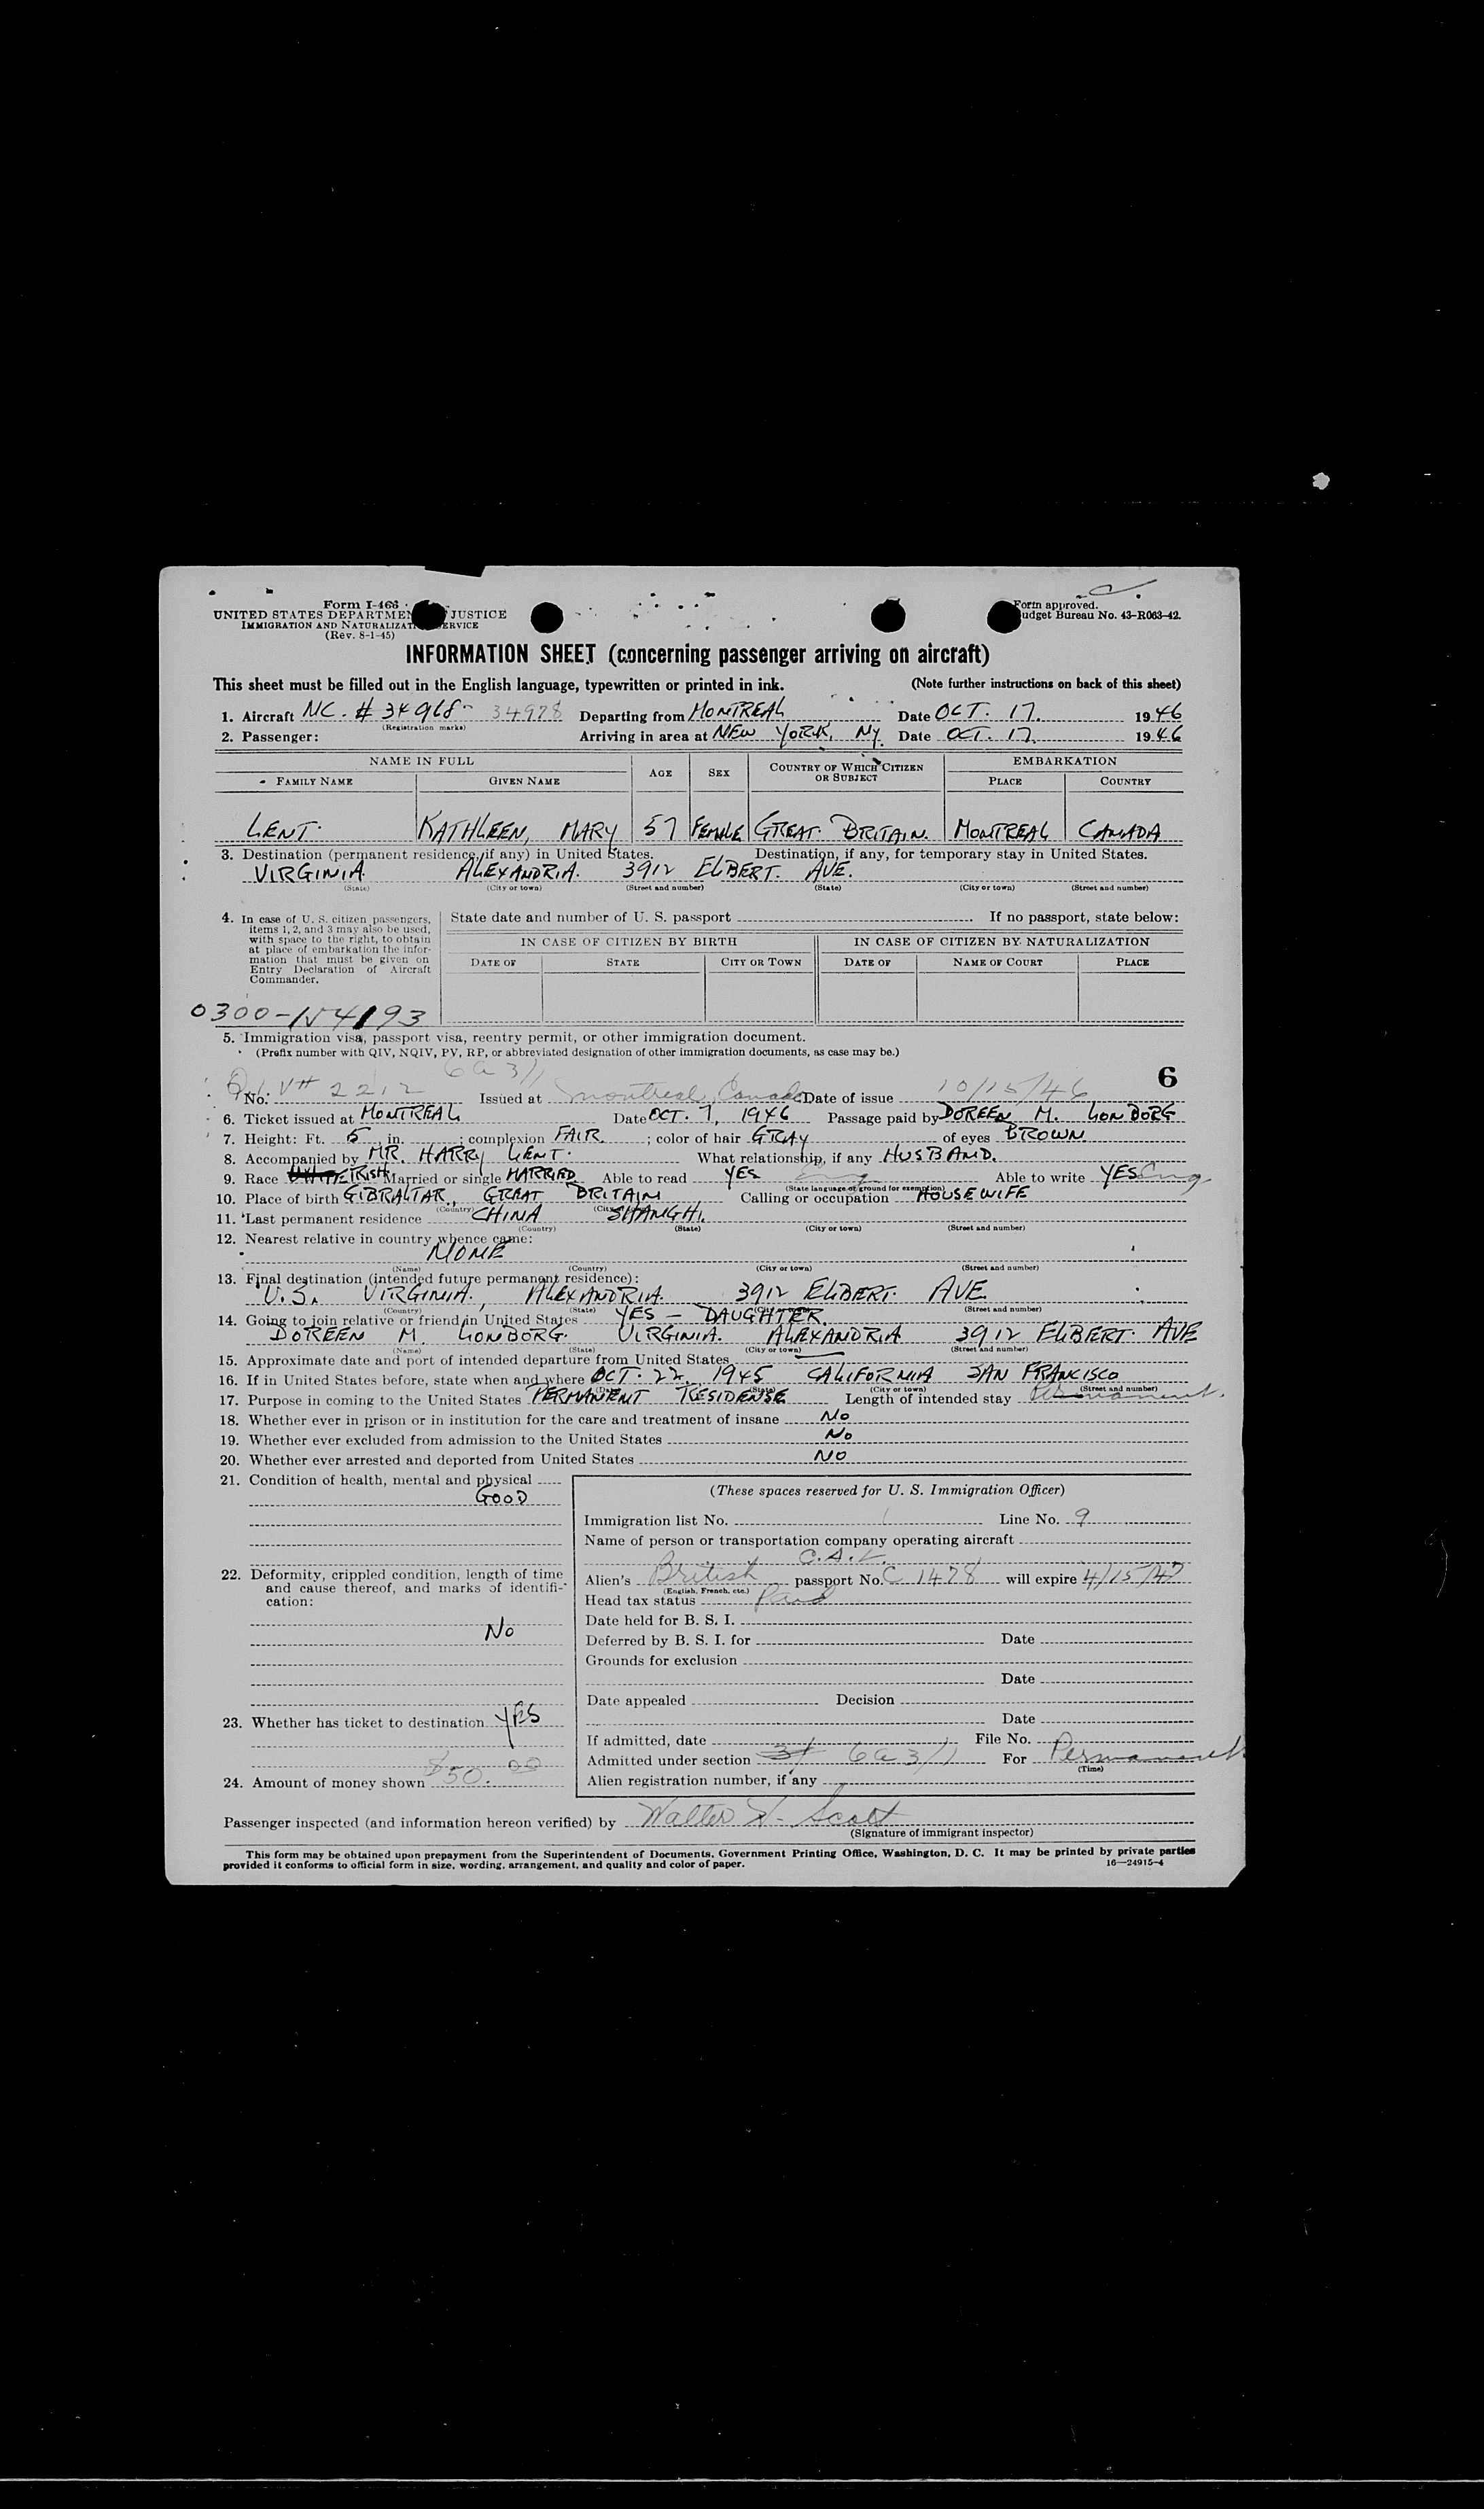 Form I-466
UNITED STATES DEPARTMENT JUSTICE
IMMIGRATION AND NATURALIZATION SERVICE
(Rev. 8-1-45)
Form approved.
Budget Bureau No. 43-R063-42.
INFORMATION SHEET (concerning passenger arriving on aircraft)
This sheet must be filled out in the English language, typewritten or printed in ink. (Note further instructions on back of this sheet)
1. Aircraft NC. # 34968 34978 Departing from MONTREAL Date OCT. 17. 1946
(Registration marks)
2. Passenger: Arriving in area at NEW YORK, NY. Date OCT. 17. 1946
NAME IN FULL AGE SEX COUNTRY OF WHICH CITIZEN OR SUBJECT EMBARKATION
FAMILY NAME GIVEN NAME PLACE COUNTRY
LENT. KATHLEEN, MARY 57 FEMALE GREAT. BRITAIN. MONTREAL CANADA
3. Destination (permanent residence, if any) in United States. Destination, if any, for temporary stay in United States.
VIRGINIA. ALEXANDRIA. 3912 ELBERT. AVE.
(State) (City or town) (Street and number) (State) (City or town) (Street and number)
4. In case of U. S. citizen passengers, items 1, 2, and 3 may also be used, with space to the right, to obtain at place of embarkation the information that must be given on Entry Declaration of Aircraft Commander.
State date and number of U. S. passport If no passport, state below:
IN CASE OF CITIZEN BY BIRTH IN CASE OF CITIZEN BY NATURALIZATION
DATE OF STATE CITY OR TOWN DATE OF NAME OF COURT PLACE
0300-N4193
5. Immigration visa, passport visa, reentry permit, or other immigration document.
(Prefix number with QIV, NQIV, PV, RP, or abbreviated designation of other immigration documents, as case may be.)
6a 3/1 6
No. V# 2212 Issued at Montreal, Canada Date of issue 10/15/46
6. Ticket issued at MONTREAL Date OCT. 7, 1946 Passage paid by DOREEN M. LONBORG
7. Height: Ft. 5 in. ; complexion FAIR. ; color of hair GRAY of eyes BROWN
8. Accompanied by MR. HARRY LENT. What relationship, if any HUSBAND.
9. Race WHITE IRISH Married or single MARRIED Able to read YES Eng Able to write YES Eng
(State language or ground for exemption)
10. Place of birth GIBRALTAR, GREAT BRITAIN Calling or occupation HOUSEWIFE
(Country)
11. Last permanent residence CHINA SHANGHI.
(Country) (State) (City or town) (Street and number)
12. Nearest relative in country whence came:
NONE
(Name) (Country) (City or town) (Street and number)
13. Final destination (intended future permanent residence):
U.S. VIRGINIA, ALEXANDRIA. 3912 ELBERT. AVE.
(Country) (State) (City or town) (Street and number)
14. Going to join relative or friend in United States YES — DAUGHTER.
DOREEN M. LONBORG. VIRGINIA. ALEXANDRIA 3912 ELBERT. AVE
(Name) (State) (City or town) (Street and number)
15. Approximate date and port of intended departure from United States
16. If in United States before, state when and where OCT. 22. 1945 CALIFORNIA SAN FRANCISCO
(State) (City or town) (Street and number)
17. Purpose in coming to the United States PERMANENT RESIDENSE Length of intended stay Permanent.
18. Whether ever in prison or in institution for the care and treatment of insane NO
19. Whether ever excluded from admission to the United States NO
20. Whether ever arrested and deported from United States NO
21. Condition of health, mental and physical
GOOD
22. Deformity, crippled condition, length of time and cause thereof, and marks of identification:
NO
23. Whether has ticket to destination YES
24. Amount of money shown $50.00
(These spaces reserved for U. S. Immigration Officer)
Immigration list No. 1 Line No. 9
Name of person or transportation company operating aircraft
C.A.L.
Alien's British passport No. C 1478 will expire 4/15/47
(English, French, etc.)
Head tax status Paid
Date held for B. S. I.
Deferred by B. S. I. for Date
Grounds for exclusion
Date
Date appealed Decision
Date
If admitted, date File No.
Admitted under section 3/ 6a 3/1 For Permanent
(Time)
Alien registration number, if any
Passenger inspected (and information hereon verified) by Walter W. Scott
(Signature of immigrant inspector)
This form may be obtained upon prepayment from the Superintendent of Documents, Government Printing Office, Washington, D. C. It may be printed by private parties
provided it conforms to official form in size, wording, arrangement, and quality and color of paper. 16—24915-4